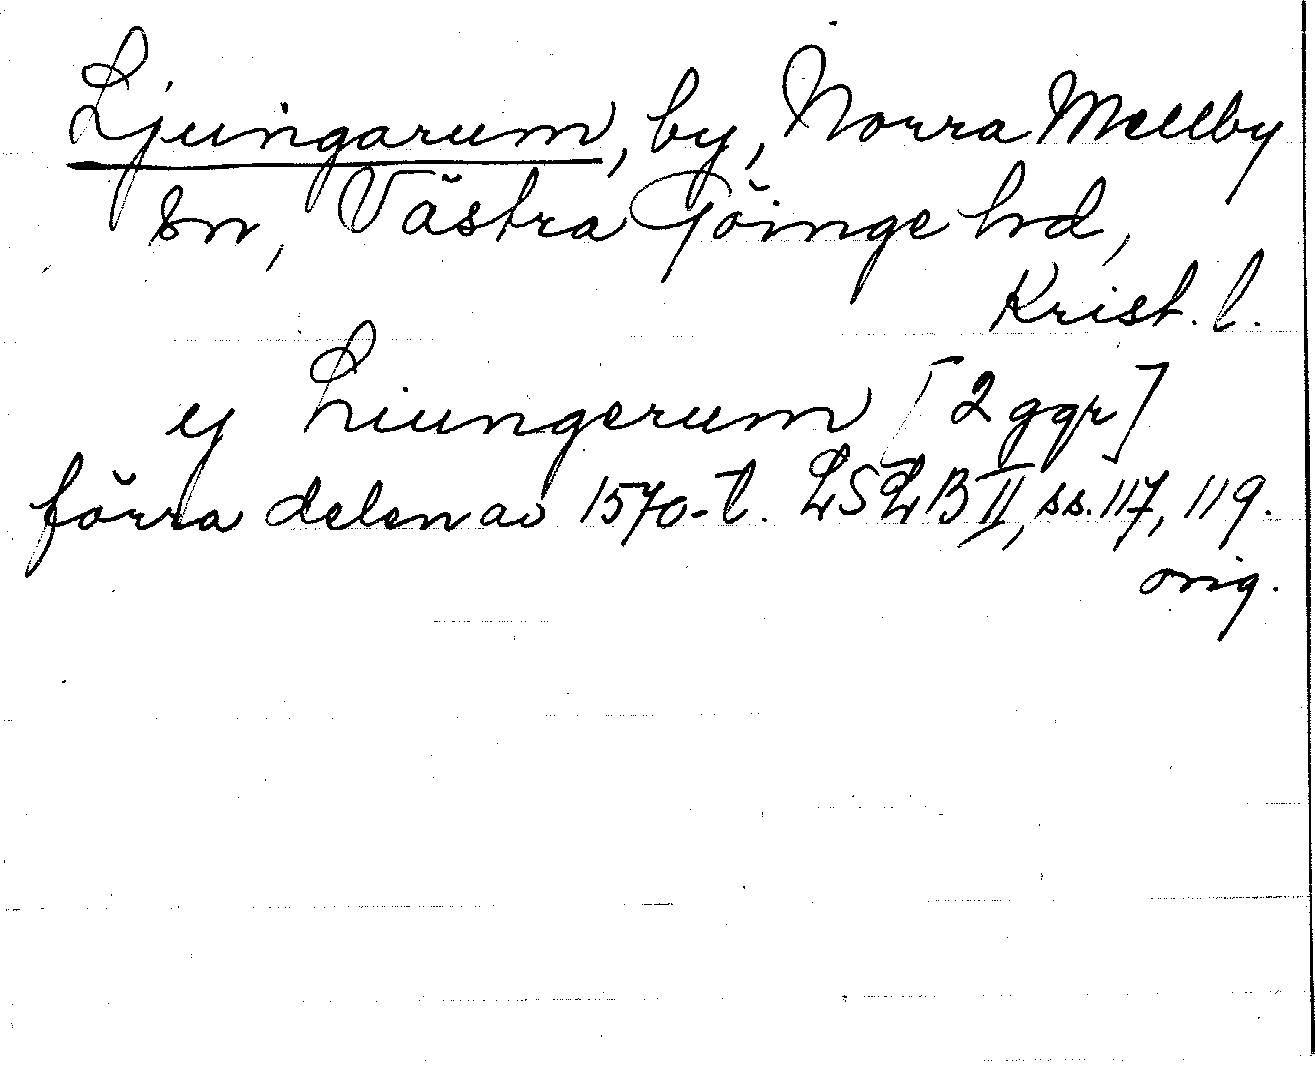 Ljungarum, by, Norra Mellby
sn, Västra Göinge hd,
Krist. l.
ij Liungerum [2 ggr]
förra delen av 1570-t. LSLB II, ss. 117, 119.
orig.